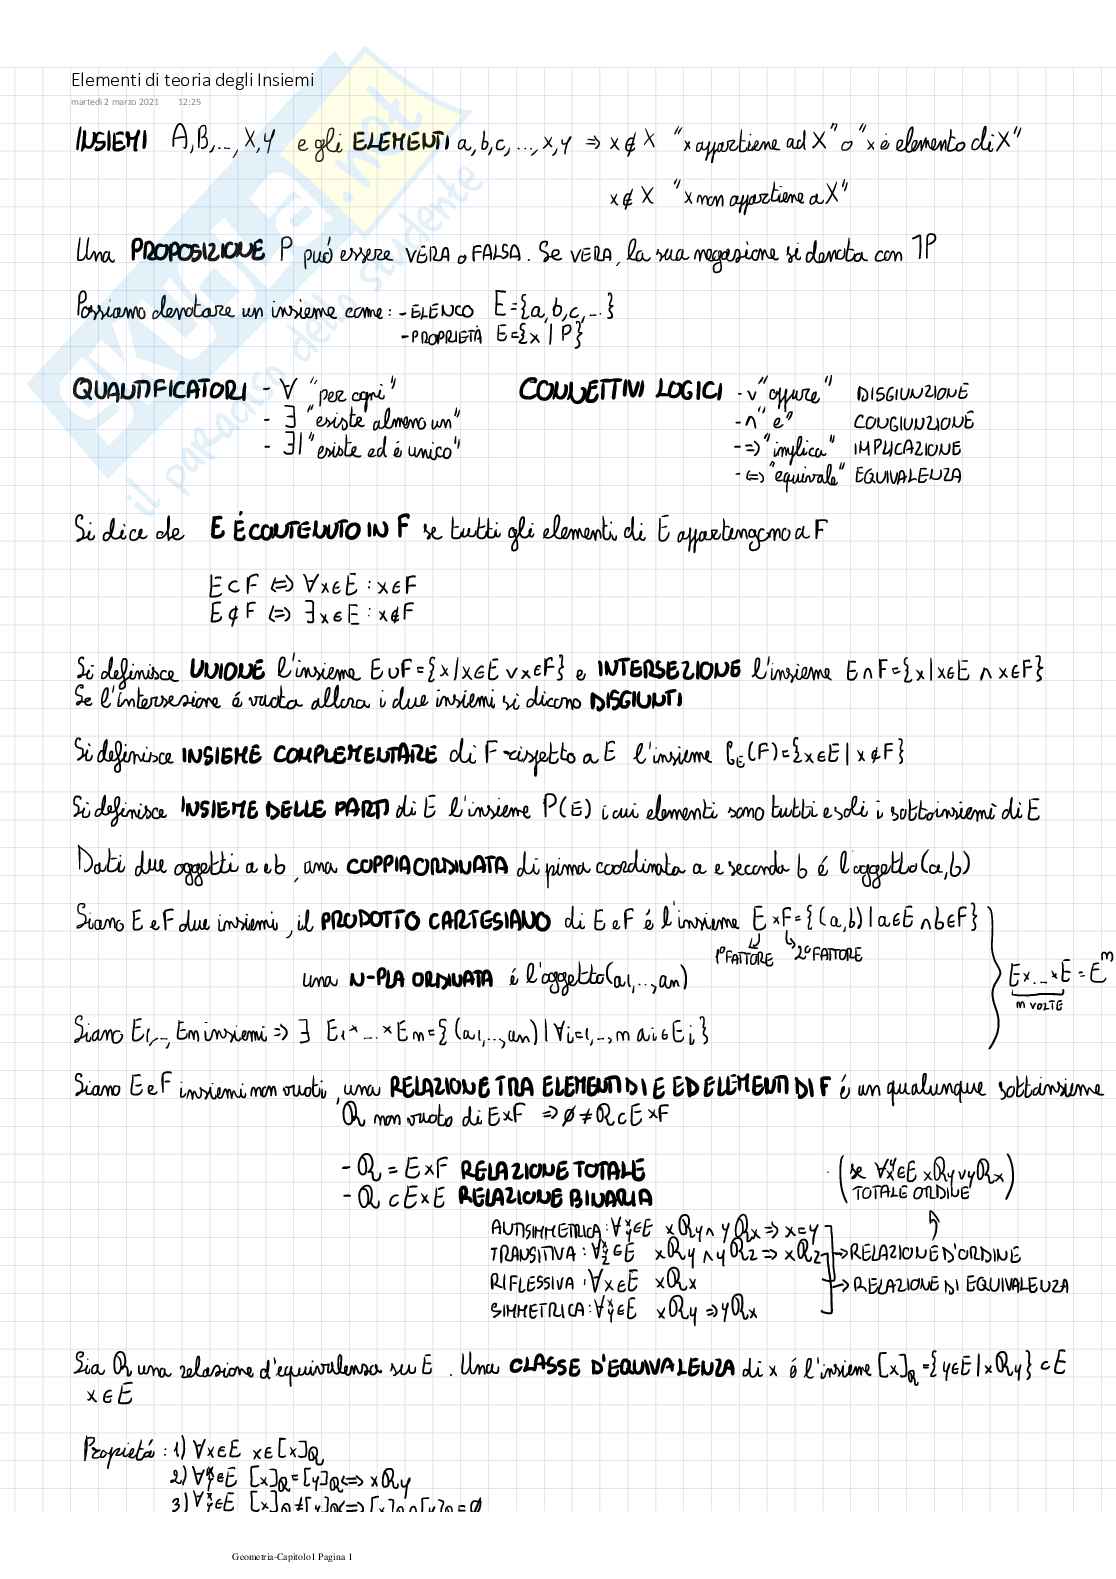 Elementi di teoria degli Insiemi
martedì 2 marzo 2021 12:25
SKUOLA.net
il paradiso dello studente
INSIEMI A,B,...,X,Y e gli ELEMENTI a,b,c,...,x,y ⇒ x∉X "x appartiene ad X" o "x è elemento di X"
x∉X "x non appartiene a X"
Una PROPOSIZIONE P può essere VERA o FALSA. Se VERA, la sua negazione si denota con ꓶP
Possiamo denotare un insieme come: - ELENCO E={a,b,c,...}
- PROPRIETÀ E={x | P}
QUANTIFICATORI - ∀ "per ogni"
- ∃ "esiste almeno un"
- ∃| "esiste ed é unico"
CONNETTIVI LOGICI - ∨ "oppure" DISGIUNZIONE
- ∩ "e" CONGIUNZIONE
- ⇒ "implica" IMPLICAZIONE
- ⇔ "equivale" EQUIVALENZA
Si dice de E É CONTENUTO IN F se tutti gli elementi di E appartengono a F
E⊂F ⇔ ∀x∈E : x∈F
E⊄F ⇔ ∃x∈E : x∉F
Si definisce UNIONE l'insieme E∪F={x|x∈E ∨ x∈F} e INTERSEZIONE l'insieme E∩F={x|x∈E ∧ x∈F}
Se l'intersezione é vuota allora i due insiemi si dicono DISGIUNTI
Si definisce INSIEME COMPLEMENTARE di F rispetto a E l'insieme C_E(F)={x∈E | x∉F}
Si definisce INSIEME DELLE PARTI di E l'insieme P(E) i cui elementi sono tutti e soli i sottoinsiemi di E
Dati due oggetti a e b, una COPPIA ORDINATA di pima coordinata a e seconda b é l'oggetto (a,b)
Siano E e F due insiemi, il PRODOTTO CARTESIANO di E e F é l'insieme E×F={(a,b)|a∈E ∩ b∈F}
1º FATTORE 2º FATTORE
una N-PLA ORDINATA é l'oggetto (a1,..,an)
E×...×E = E^m
m VOLTE
Siano E1,..,En insiemi ⇒ ∃ E1×...×En={(a1,..,an)|∀i=1,..,m ai∈Ei}
Siano E e F insiemi non vuoti, una RELAZIONE TRA ELEMENTI DI E ED ELEMENTI DI F é un qualunque sottoinsieme
R non vuoto di E×F ⇒ ∅≠R⊂E×F
- R = E×F RELAZIONE TOTALE
- R ⊂ E×E RELAZIONE BINARIA
(se ∀x,y∈E xRy ∨ yRx)
TOTALE ORDINE
AUTISIMMETRICA: ∀x,y∈E xRy ∧ yRx ⇒ x=y
TRANSITIVA: ∀x,y,z∈E xRy ∧ yRz ⇒ xRz → RELAZIONE D'ORDINE
RIFLESSIVA: ∀x∈E xRx → RELAZIONE DI EQUIVALENZA
SIMMETRICA: ∀x,y∈E xRy ⇒ yRx
Sia R una relazione d'equivalenza su E. Una CLASSE D'EQUIVALENZA di x é l'insieme [x]_R={y∈E|xRy}⊂E
x∈E
Propietá: 1) ∀x∈E x∈[x]_R
2) ∀x,y∈E [x]_R=[y]_R ⇔ xRy
3) ∀x,y∈E [x]_R≠[y]_R ⇔ [x]_R∩[y]_R=∅
Geometria-Capitolo1 Pagina 1